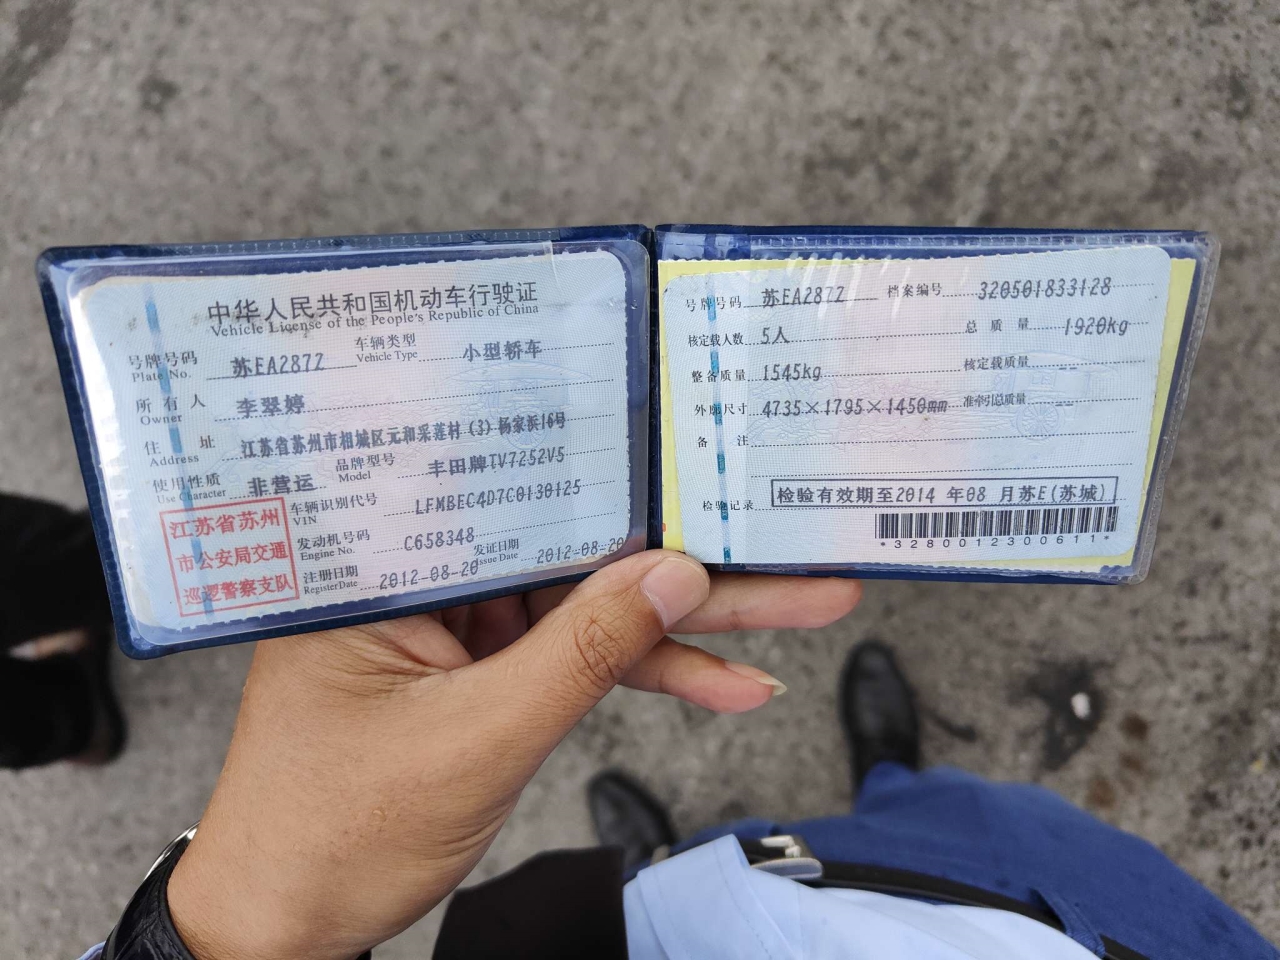 中华人民共和国机动车行驶证
Vehicle License of the People's Republic of China
号牌号码 苏EA287Z 车辆类型 小型轿车
Plate No. Vehicle Type
所有人 李翠婷
Owner
住址 江苏省苏州市相城区元和采莲村(3)杨家长16号
Address
使用性质 非营运 品牌型号 丰田牌TV7252V5
Use Character Model
江苏省苏州
市公安局交通
巡逻警察支队
车辆识别代号 LFMBEC4D7C0130125
VIN
发动机号码 C658348
Engine No.
注册日期 2012-08-20 发证日期 2012-08-20
Register Date Issue Date
号牌号码 苏EA287Z 档案编号 320501833128
核定载人数 5人 总质量 1920kg
整备质量 1545kg 核定载质量 --
外廓尺寸 4735×1795×1450mm 准牵引总质量 --
备注
检验记录 检验有效期至2014年08月苏E(苏城)
*3280012300611*